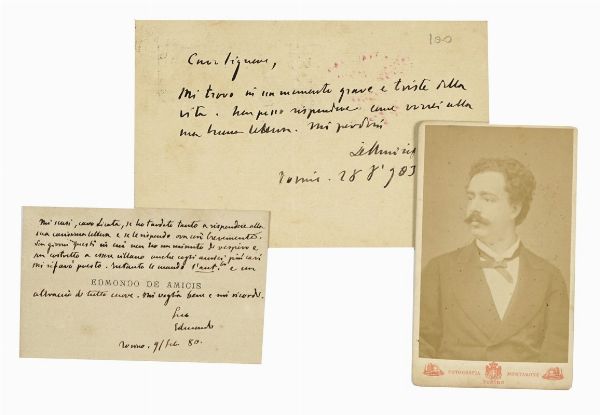 100
Caro Signore,
Mi trovo in un momento grave e triste della
vita. Non posso rispondere come vorrei alla
sua buona lettera. Mi perdoni
De Amicis
Torino. 28 8 903
Mi scusi, caro Licata, se ho tardato tanto a rispondere alla
sua carissima lettera e se le rispondo ora così brevemente.
Son giorni questi in cui non ho un minuto di respiro e
son costretto a esser villano anche cogli amici più cari
mi rifarò presto. Intanto le mando l'aut. e un
EDMONDO DE AMICIS
abbraccio di tutto cuore. Mi voglia bene e mi ricordi.
Suo
Edmondo
Torino. 9/ 80.
FOTOGRAFIA MONTABONE
TORINO